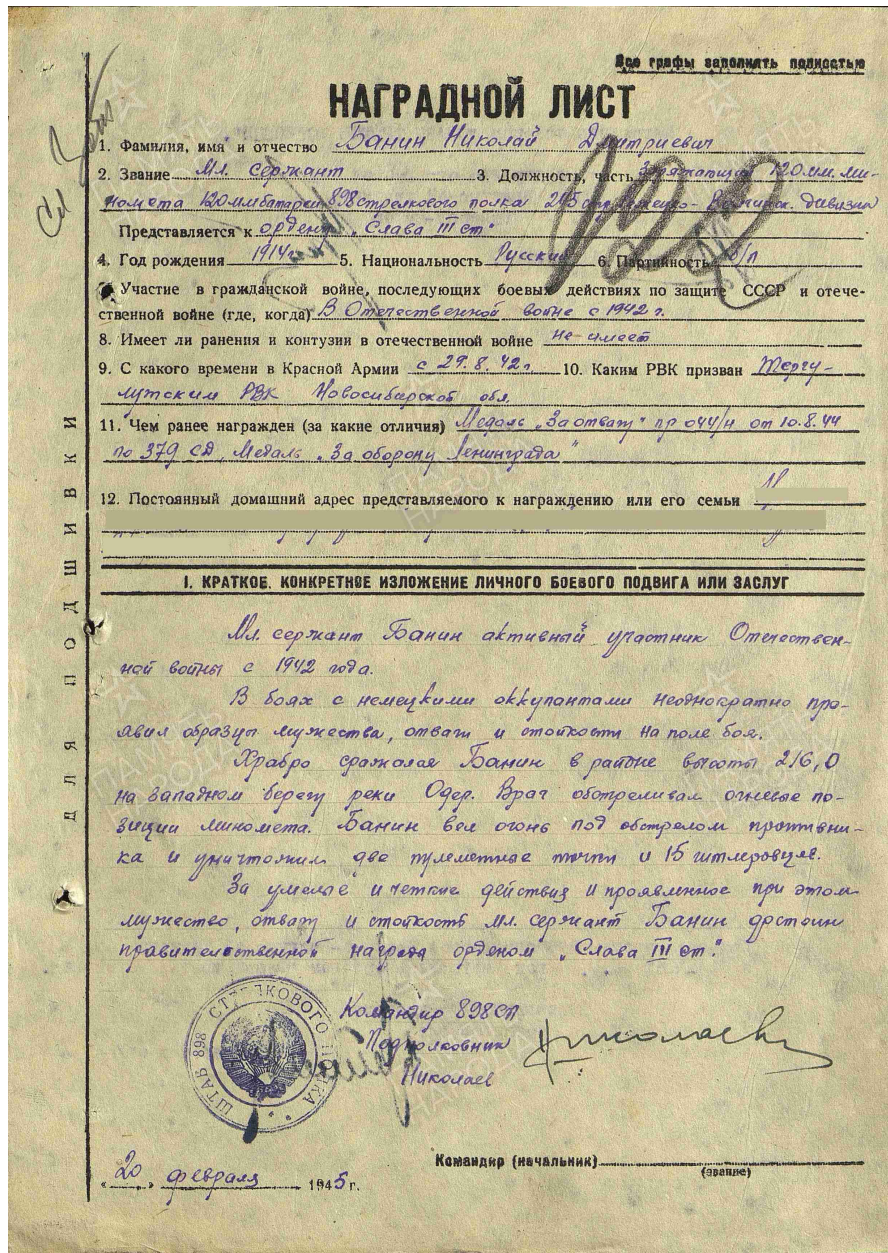 Все графы заполнять полностью
НАГРАДНОЙ ЛИСТ
1. Фамилия, имя и отчество Банин Николай Дмитриевич
2. Звание Мл. сержант 3. Должность, часть Заряжающий 120 мм. ми-
номета 120мм батареи 898 стрелкового полка 245 дивизии
Представляется к ордену „Слава III ст"
4. Год рождения 1914 г. 5. Национальность Русский 6. Партийность б/п
Участие в гражданской войне, последующих боевых действиях по защите СССР и отече-
ственной войне (где, когда) В Отечественной войне с 1942 г.
8. Имеет ли ранения и контузии в отечественной войне не имеет
9. С какого времени в Красной Армии с 29.8.42 г. 10. Каким РВК призван
РВК Новосибирской обл.
11. Чем ранее награжден (за какие отличия) Медаль „За отвагу" пр 044/н от 10.8.44
по 379 СД, Медаль „За оборону Ленинграда"
12. Постоянный домашний адрес представляемого к награждению или его семьи
I. КРАТКОЕ, КОНКРЕТНОЕ ИЗЛОЖЕНИЕ ЛИЧНОГО БОЕВОГО ПОДВИГА ИЛИ ЗАСЛУГ
Мл. сержант Банин активный участник Отечествен-
ной войны с 1942 года.
В боях с немецкими оккупантами неоднократно про-
явил образцы мужества, отваги и стойкости на поле боя.
Храбро сражался Банин в районе высоты 216,0
на западном берегу реки Одер. Враг обстреливал огневые по-
зиции миномета. Банин вел огонь под обстрелом противни-
ка и уничтожил две пулеметные точки и 15 гитлеровцев.
За умелые и четкие действия и проявленное при этом
мужество, отвагу и стойкость мл. сержант Банин достоин
правительственной награды орденом „Слава III ст".
Командир 898 СП
Подполковник
Николаев
Николаев
ШТАБ 898 СТРЕЛКОВОГО ПОЛКА
Командир (начальник)
(звание)
„20" февраля 1945 г.
ДЛЯ ПОДШИВКИ
ПАМЯТЬ НАРОДА